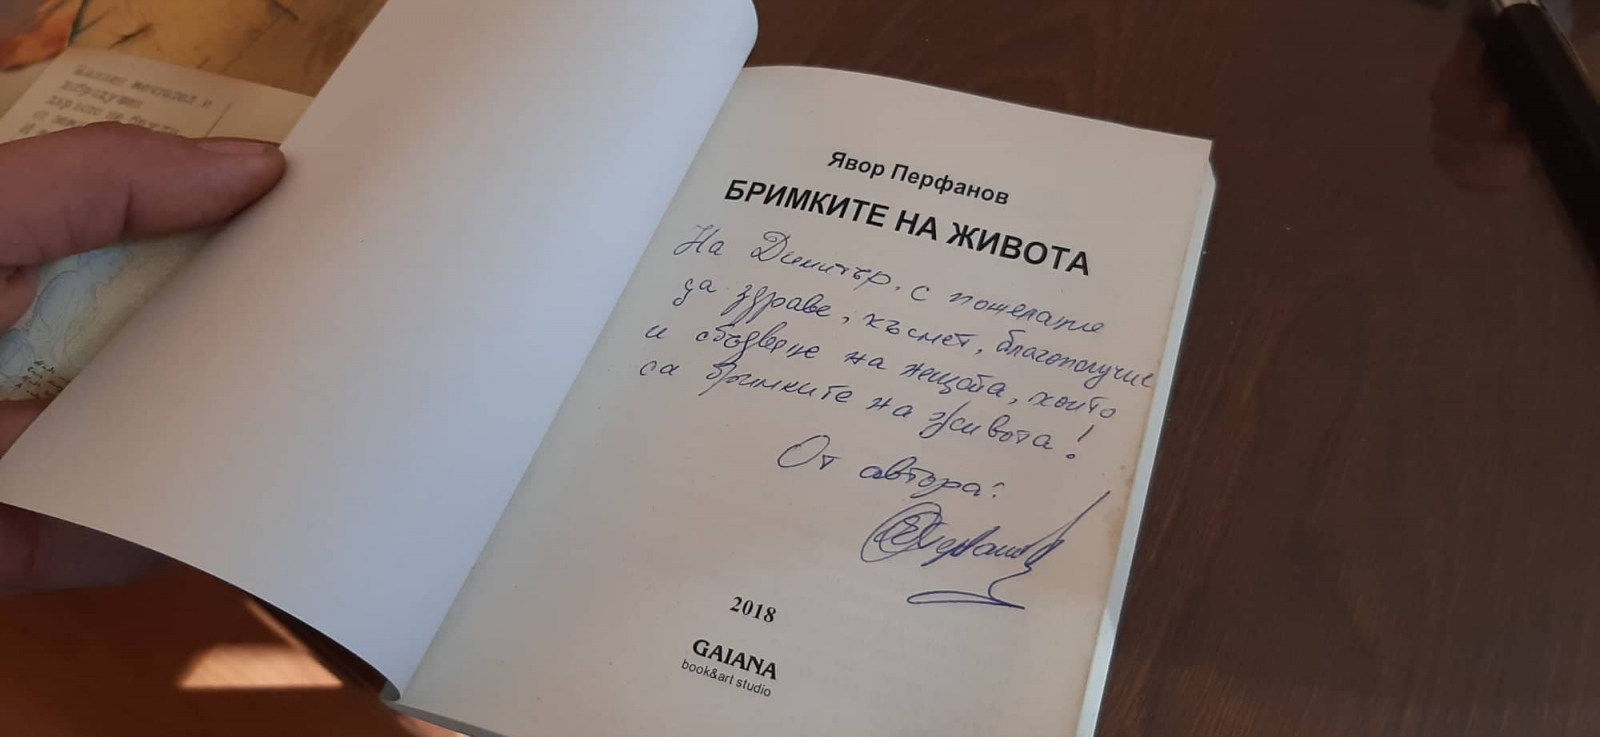 Явор Перфанов
БРИМКИТЕ НА ЖИВОТА
На Димитър, с пожелание
за здраве, късмет, благополучие
и сбъдване на нещата, които
са бримките на живота!
От автора:
2018
GAIANA
book&art studio